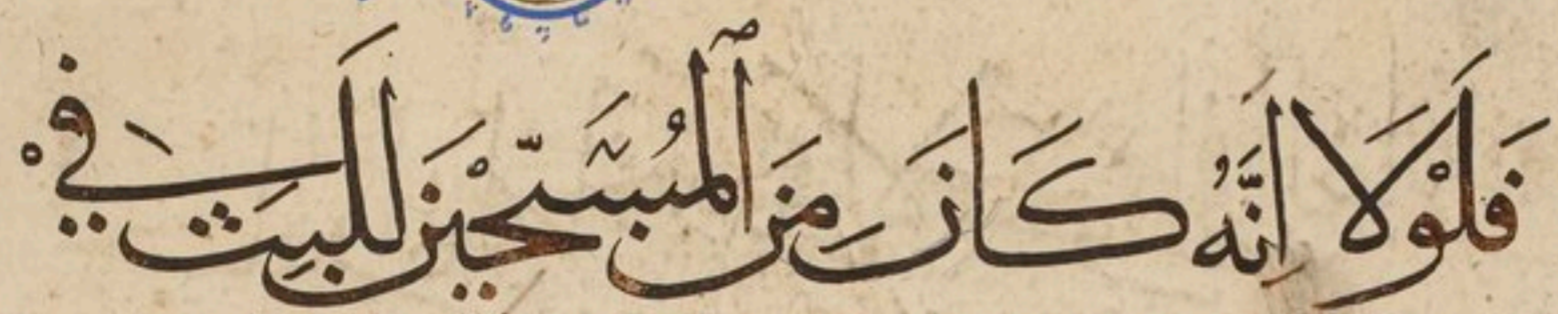 فَلَوْلَا أَنَّهُ كَانَ مِنَ ٱلْمُسَبِّحِيْنَ لَلَبِثَ فِي